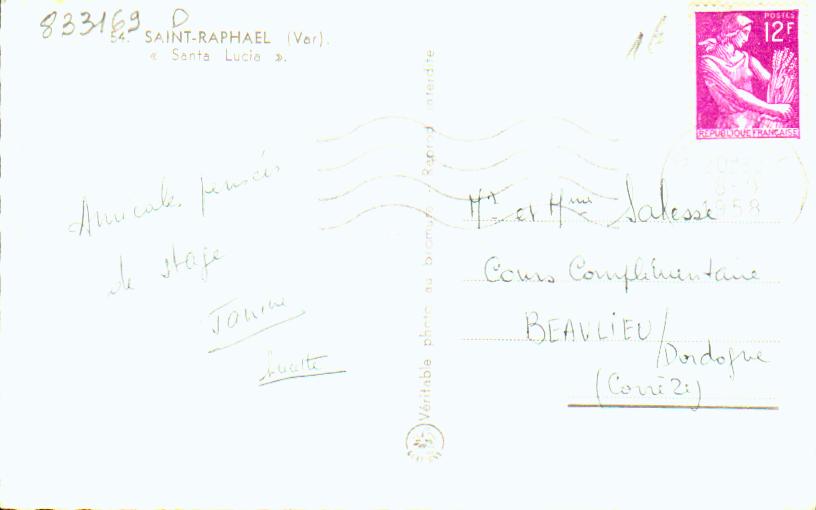 833169 D
54. SAINT-RAPHAEL (Var).
« Santa Lucia ».
POSTES
12F
REPUBLIQUE FRANÇAISE
1958
Amicales pensées
de stage
Janine
Lucette
Mr et Mme Salesse
Cours Complémentaire
BEAULIEU / Dordogne
(Corrèze)
Véritable photo au bromure - Reprod. interdite